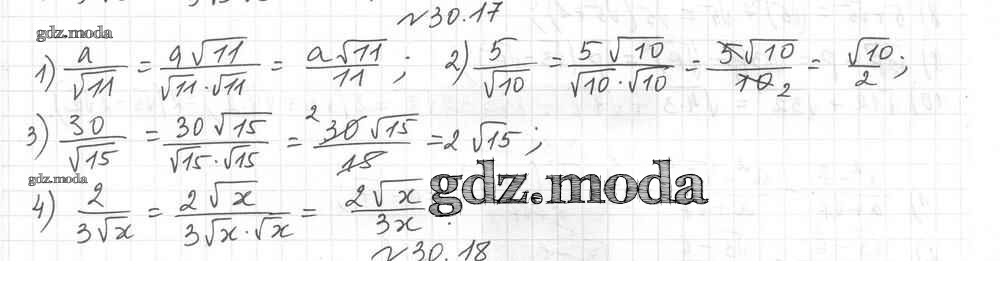 №30.17
gdz.moda
1) a/√11 = a√11/(√11·√11) = a√11/11; 2) 5/√10 = 5√10/(√10·√10) = 5√10/10 2 = √10/2;
3) 30/√15 = 30√15/(√15·√15) = 2 30√15/15 = 2√15;
gdz.moda
4) 2/(3√x) = 2√x/(3√x·√x) = 2√x/3x.
gdz.moda
№30.18